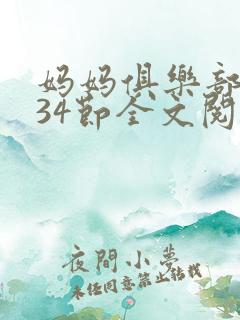 妈妈俱樂部
34節全文閱
夜間小夢
未经同意禁止转载